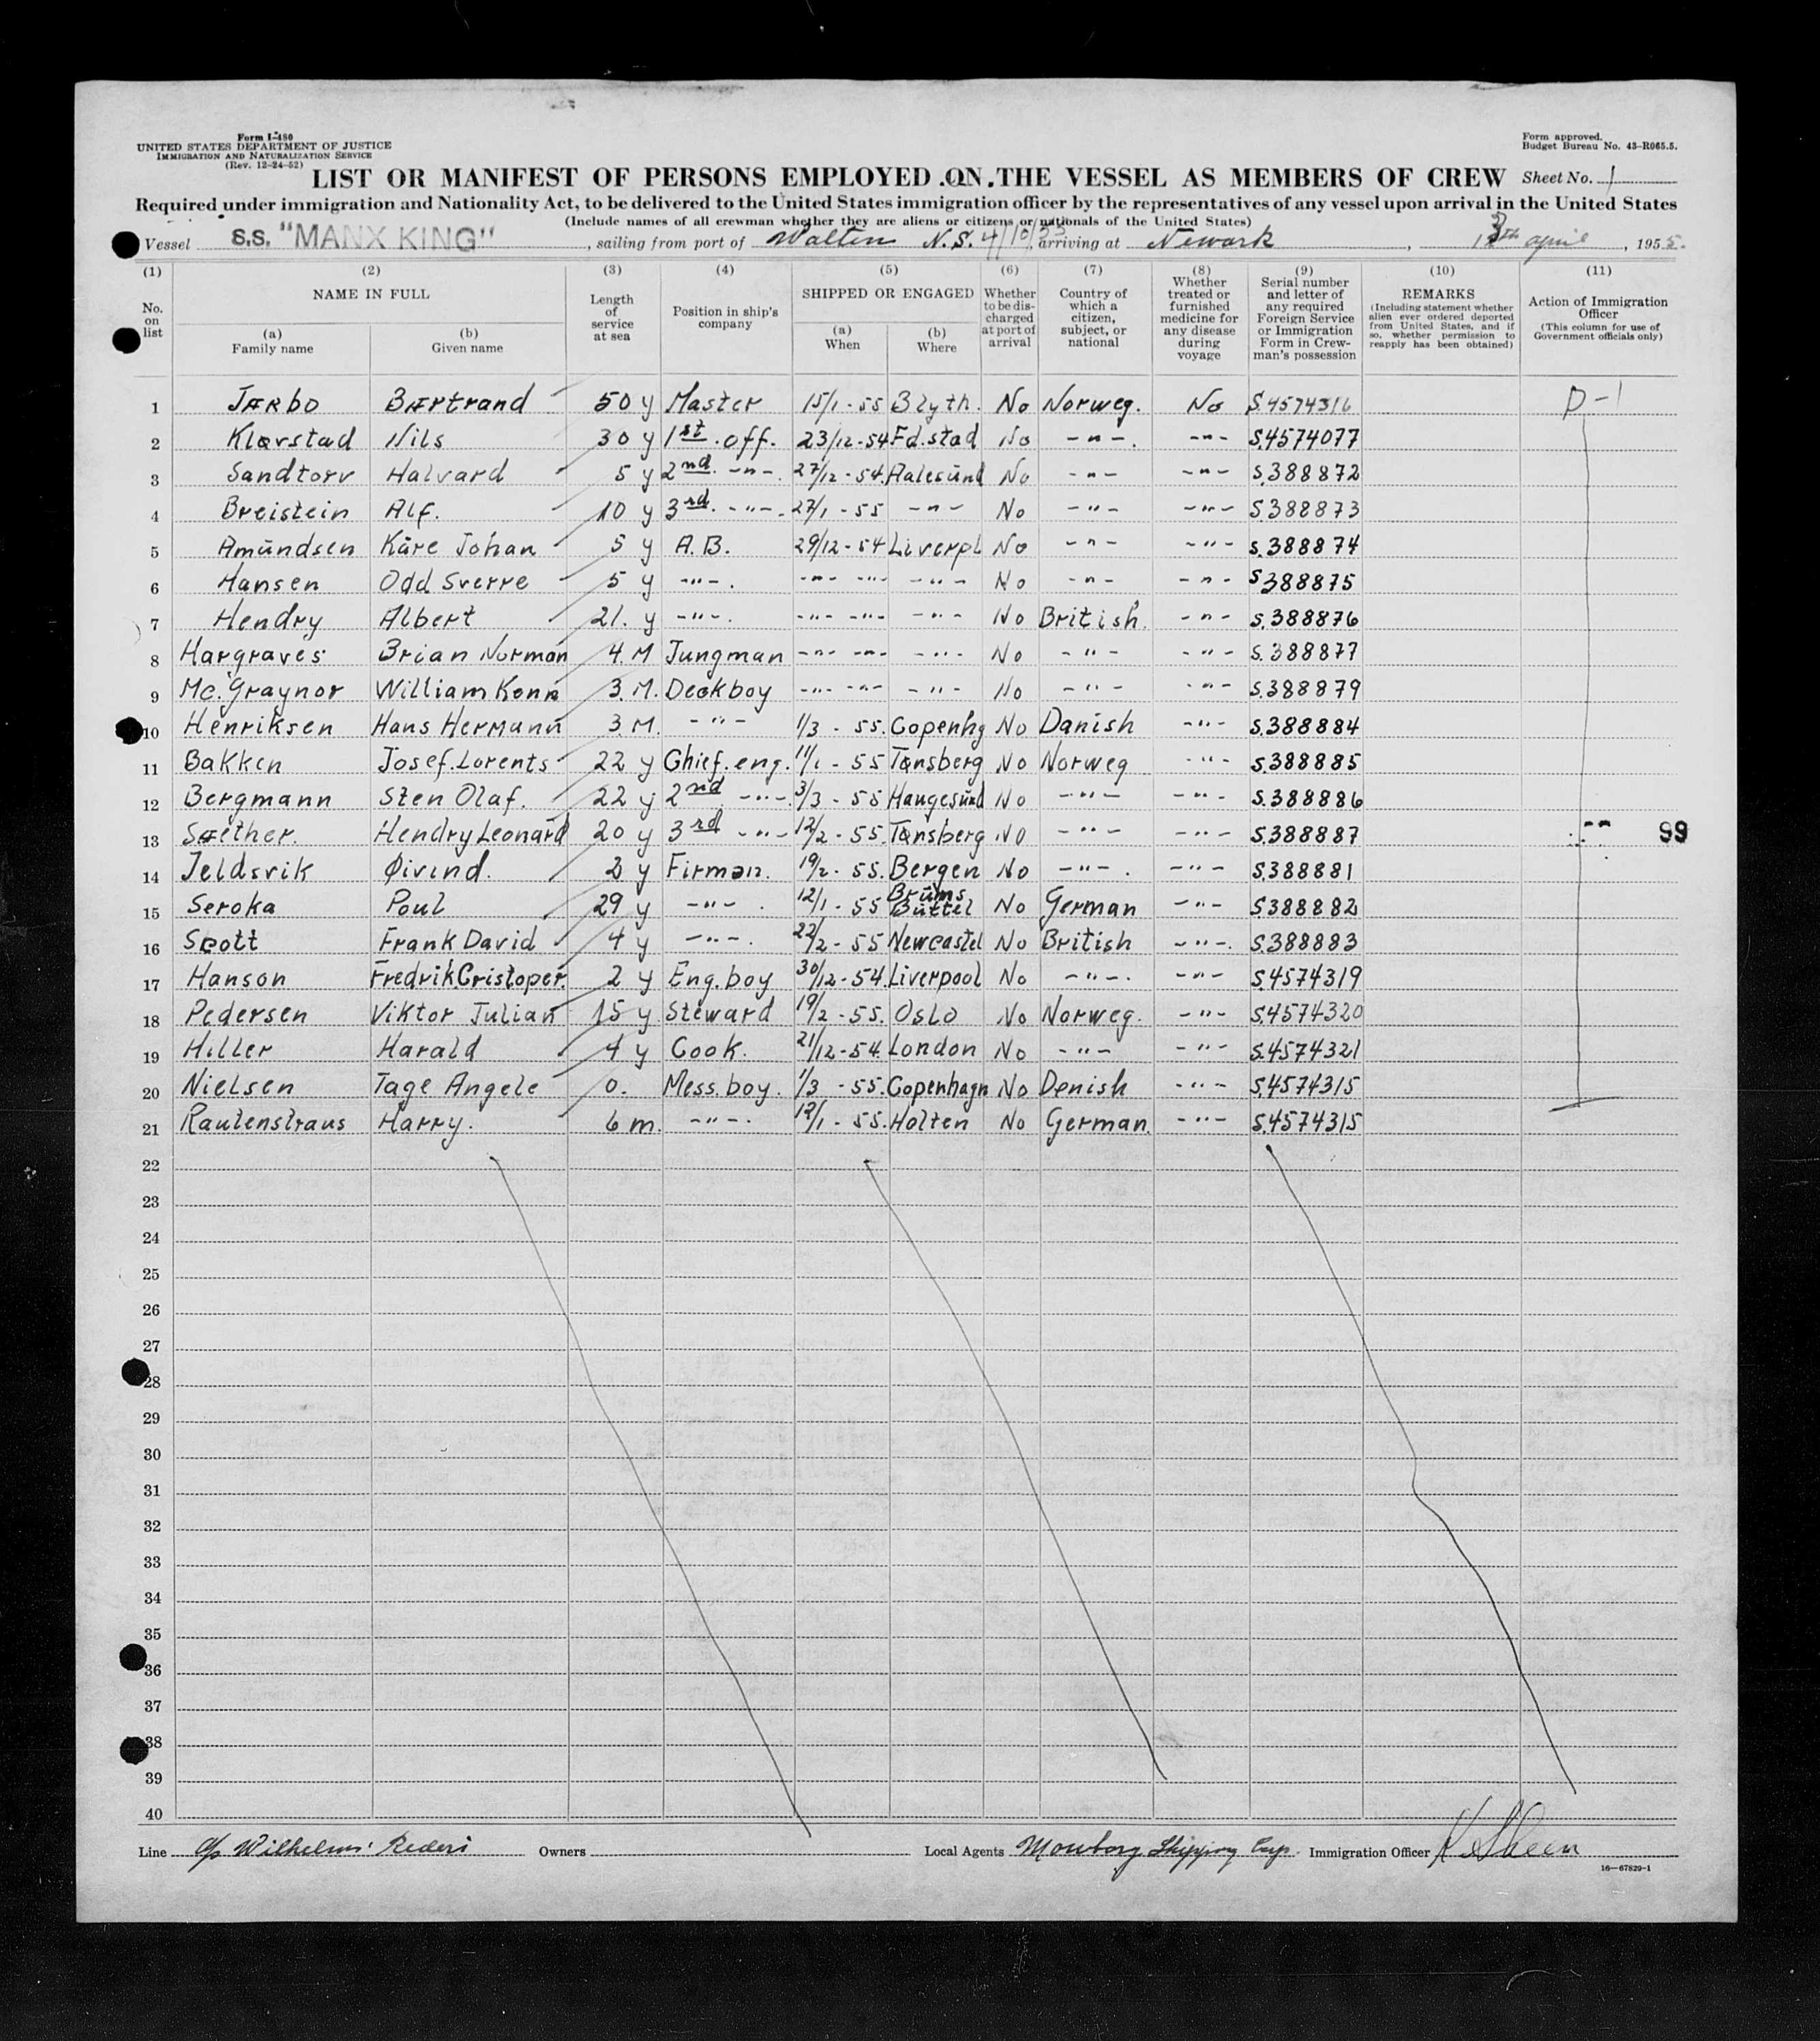 Form I-480
UNITED STATES DEPARTMENT OF JUSTICE
IMMIGRATION AND NATURALIZATION SERVICE
(Rev. 12-24-52)
Form approved.
Budget Bureau No. 43-R065.5.
LIST OR MANIFEST OF PERSONS EMPLOYED ON THE VESSEL AS MEMBERS OF CREW Sheet No. 1
Required under immigration and Nationality Act, to be delivered to the United States immigration officer by the representatives of any vessel upon arrival in the United States
(Include names of all crewman whether they are aliens or citizens or nationals of the United States)
Vessel S.S. "MANX KING", sailing from port of Walton N.S. 4/10/55 arriving at Newark, 13th april, 1955.
(1) No. on list
(2) NAME IN FULL
(a) Family name
(b) Given name
(3) Length of service at sea
(4) Position in ship's company
(5) SHIPPED OR ENGAGED
(a) When
(b) Where
(6) Whether to be discharged at port of arrival
(7) Country of which a citizen, subject, or national
(8) Whether treated or furnished medicine for any disease during voyage
(9) Serial number and letter of any required Foreign Service or Immigration Form in Crewman's possession
(10) REMARKS (Including statement whether alien ever ordered deported from United States, and if so, whether permission to reapply has been obtained)
(11) Action of Immigration Officer (This column for use of Government officials only)
1 Jærbo Bærtrand 50 y Master 15/1-55 Blyth. No Norweg. No S.4574316 D-1
2 Kløvstad Nils 30 y 1st. off. 23/12-54 Fd.stad No -"-. -"- S.4574077
3 Sandtorv Halvard 5 y 2nd. -"-. 27/12-54. Aalesund No -"- -"- S.388872
4 Breistein Alf. 10 y 3rd. -"-. 27/1-55 -"- No -"- -"- S.388873
5 Amundsen Kåre Johan 5 y A.B. 29/12-54 Liverpl No -"- -"- S.388874
6 Hansen Odd Sverre 5 y -"-. -"- -"- -"- No -"- -"- S388875
7 Hendry Albert 21. y -"-. -"- -"- -"- No British. -"- S.388876
8 Hargraves Brian Norman 4. M Jungman -"- -"- -"- No -"- -"- S.388877
9 Mc. Graynor William Kenn 3. M. Deckboy -"- -"- -"- No -"- -"- S.388879
10 Henriksen Hans Hermann 3. M. -"- 1/3 - 55. Copenhg No Danish -"- S.388884
11 Bakken Josef. Lorents 22 y Chief. eng. 11/1 - 55 Tønsberg No Norweg -"- S.388885
12 Bergmann Sten Olaf. 22 y 2nd. -"-. 3/3 - 55 Haugesund No -"- -"- S.388886
13 Sæther. Hendry Leonard 20 y 3rd -"- 12/2 - 55. Tønsberg No -"- -"- S.388887 99
14 Jeldsvik Øivind. 2 y Firman. 19/2 - 55. Bergen No -"-. -"- S.388881
15 Seroka Poul 29 y -"-. 12/1 - 55 Brüms Büttel No German -"- S388882
16 Scott Frank David 4 y -"-. 22/2 - 55 Newcastel No British -"-. S.388883
17 Hanson Fredrik.Cristoper. 2 y Eng. boy 30/12-54. Liverpool No -"-. -"- S.4574319
18 Pedersen Viktor Julian 15 y Steward 19/2 - 55. Oslo No Norweg. -"- S.4574320
19 Hiller Harald 4 y Cook. 21/12-54. London No -"- -"- S.4574321
20 Nielsen Tage Angele 0. Mess. boy. 1/3 - 55. Copenhagn No Denish -"- S.4574315
21 Rautenstraus Harry. 6 m. -"-. 12/1 - 55. Holten No German. -"- S.4574315
22
23
24
25
26
27
28
29
30
31
32
33
34
35
36
37
38
39
40
Line c/o Wilhelms' Rederi Owners Local Agents Shipping Corp. Immigration Officer
16—67829-1